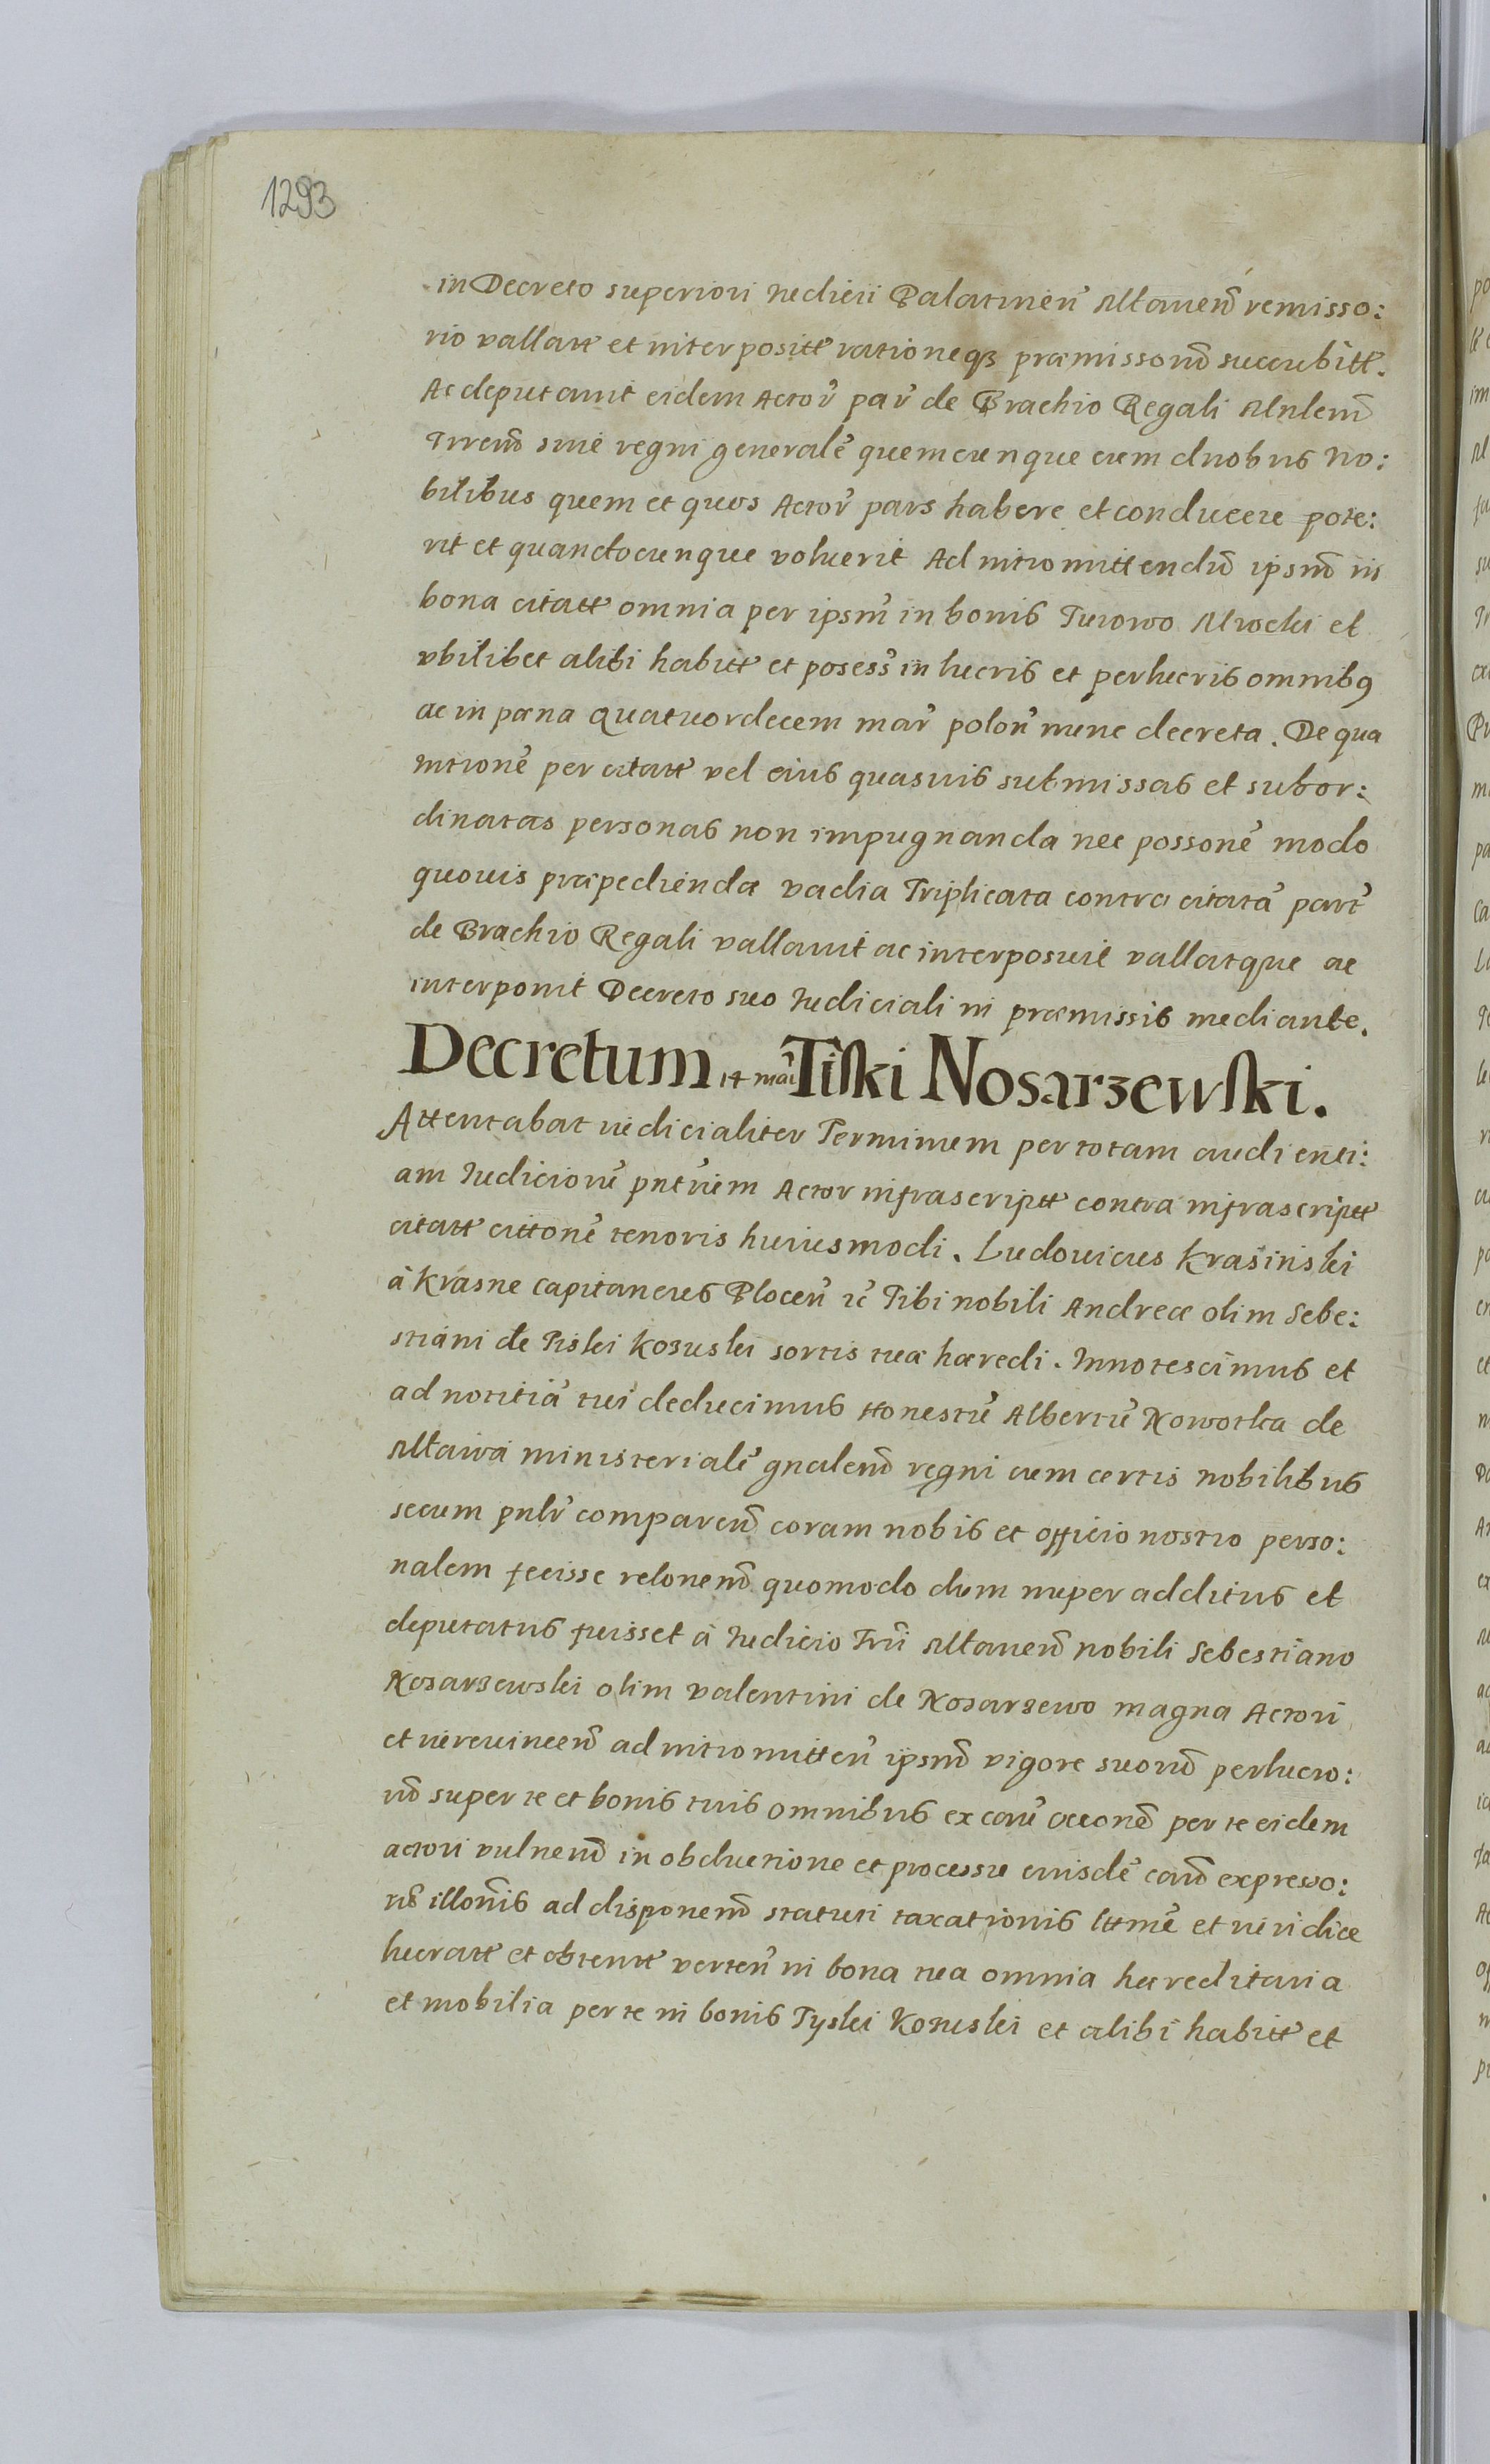 1293
in Decreto superiori Iudicii Palatinen̄ Mlauen̄ remisso:
rio vallatt et interpositt rationeqꝫ præmissorū succubitt.
Ac deputauit eidem Actor̄ par̄ de Brachio Regali Mnlem̄
Trrem̄ siue regni generalē quemcunque cum duobus No:
bilibus quem et quos Actor̄ pars habere et conducere pote:
rit et quandocunque voluerit Ad intromittendū ipsm̄ in
bona citatt omnia per ipsm̄ in bonis Turowo Mrocki et
vbilibet alibi habitt et posess̄ in lucris et perlucris omnibꝯ
ac in pœna quatuordecem mar̄ polon̄ nunc decreta. De qua
Intronē per citatt vel eius quasuis submissas et subor:
dinatas personas non impugnanda nec possonē modo
quouis præpedienda vadia Triplicata contra citatā part̄
de Brachio Regali vallauit ac interposuit vallatque ac
interponit Decreto suo Iudiciali in præmissis mediante.
Decretum 14 mar̄ Tiski Nosarzewski.
Attentabat iudicialiter Terminum per totam audienti:
am Iudiciorū pn̄tium Actor infrascriptt contra infrascriptt
citatt cittonē tenoris huiusmodi. Ludouicus Krasinski
à Krasne Capitaneus Plocen̄ ꝛc̄ Tibi nobili Andreæ olim Sebe:
stiani de Tiski Kozuski sortis tuæ hæredi. Innotescimus et
ad notitiā tui deducimus Honestū Albertū Nowotka de
Mlawa ministerialē gnalem̄ regni cum certis nobilibus
secum pn̄lr̄ comparen̄ coram nobis et officio nostro perso:
nalem fecisse relonem̄ quomodo dum nuper additus et
deputatus fuisset à Iudicio Trri Mlauen̄ nobili Sebestiano
Nosarzewski olim Valentini de Nosarzewo magna Actori
et iureuincen̄ ad intromitten̄ ipsm̄ vigore suorū perlucro:
rū super te et bonis tuis omnibus ex cau̅ occone̅ per te eidem
actori vulnerū in obductione et processu eiusdē cau̅ expresso:
rū illonis ad disponem̄ statuti taxationis lttme̅ et iuridice
lucratt et obtentt verten̄ in bona tua omnia hæreditaria
et mobilia per te in bonis Tyski Kozuski et alibi habitt et